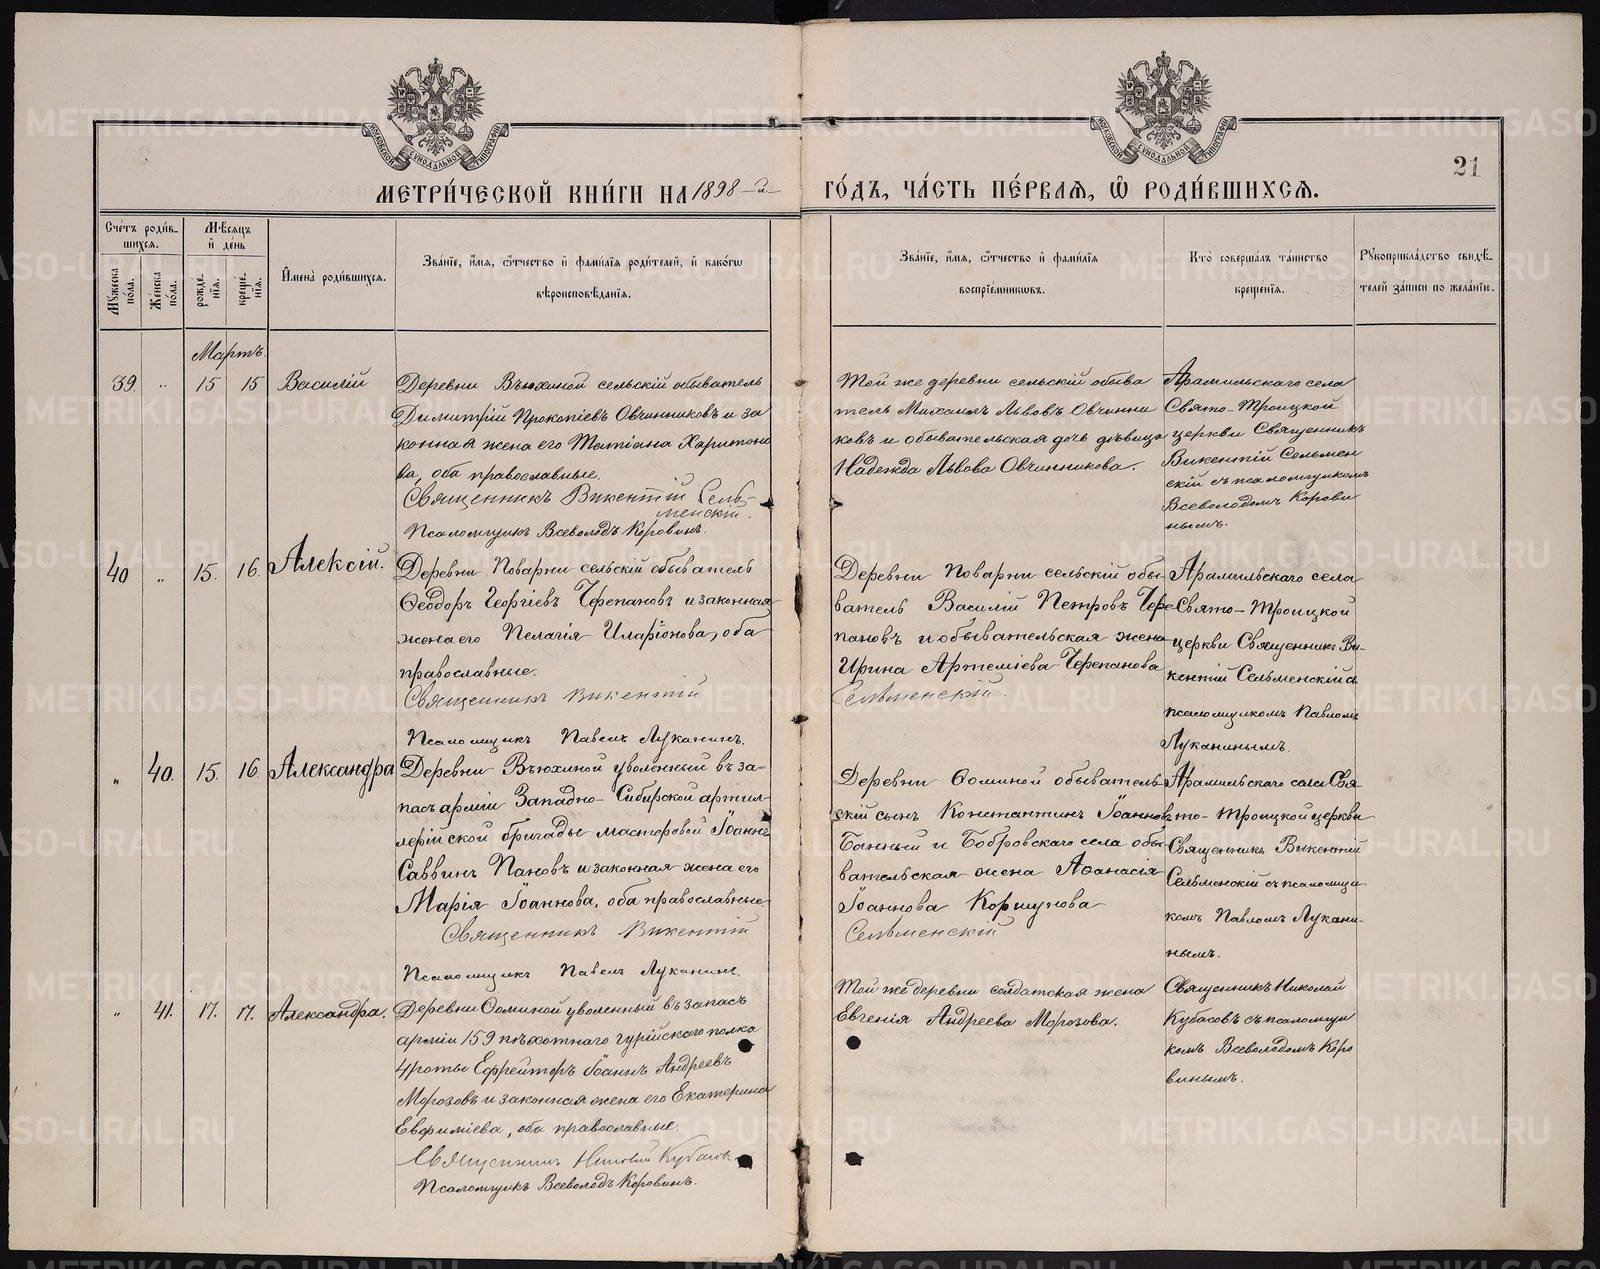 МОСКОВСКОЙ СѴНОДАЛЬНОЙ ТИПОГРАФІИ
МОСКОВСКОЙ СѴНОДАЛЬНОЙ ТИПОГРАФІИ
21
МЕТРИ́ЧЕСКОЙ КНИ́ГИ НА 1898-й ГО́ДЪ, ЧА́СТЬ ПЕ́РВАѦ, Ѡ҆ РОДИ́ВШИХСѦ.
Сче́тъ роди́вшихсѧ.
Мꙋ́жеска по́ла.
Же́нска по́ла.
Мѣ́сѧцъ и҆ де́нь
рожде́нїѧ.
креще́нїѧ.
И҆мена̀ роди́вшихсѧ.
Зва́нїе, и҆́мѧ, ѻ҆́тчество и҆ фами́лїѧ роди́телей, и҆ како́гѡ
вѣроисповѣ́данїѧ.
Зва́нїе, и҆́мѧ, ѻ҆́тчество и҆ фами́лїѧ
воспрїе́мниковъ.
Кто̀ соверша́лъ та́инство
креще́нїѧ.
Рꙋкоприкла́дство свидѣ́-
телей за́писи по жела́нїю.
Мартъ.
39. „ 15 15 Василій
Деревни Вьюхиной сельскій обыватель
Димитрій Прокопіевъ Овчинниковъ и за
конная жена его Татіана Харитоно
ва, оба православные.
Священникъ Викентій Сель-
менскій.
Псаломщикъ Всеволодъ Коровинъ.
Той же деревни сельскій обыва
тель Михаилъ Львовъ Овчинни
ковъ и обывательская дочь дѣвица
Надежда Львова Овчинникова.
Арамильскаго села
Свято-Троицкой
церкви Священникъ
Викентій Сельмен
скій съ псаломщикомъ
Всеволодомъ Корови
нымъ.
40 „ 15. 16. Алексій.
Деревни Поварни сельскій обыватель
Ѳеодоръ Георгіевъ Черепановъ и законная
жена его Пелагія Иларіонова, оба
православные.
Священникъ Викентій
Псаломщикъ Павелъ Луканинъ.
Деревни Поварни сельскій обы-
ватель Василій Петровъ Чере
пановъ и обывательская жена
Ирина Артеміева Черепанова
Сельменскій.
Арамильскаго села
Свято-Троицкой
церкви Священникъ Ви-
кентій Сельменскій съ
псаломщикомъ Павломъ
Луканинымъ.
„ 40. 15. 16. Александра
Деревни Вьюхиной уволенный въ за-
пасъ арміи Западно-Сибирской артил-
лерійской бригады мастеровой Іоаннъ
Саввинъ Пановъ и законная жена его
Марія Іоаннова, оба православные
Священникъ Викентій
Псаломщикъ Павелъ Луканинъ.
Деревни Ѳоминой обыватель-
скій сынъ Константинъ Іоанновъ
Банный и Бобровскаго села обы-
вательская жена Аѳанасія
Іоаннова Коршунова
Сельменскій
Арамильскаго села Свя-
то-Троицкой церкви
Священникъ Викентій
Сельменскій съ псаломщи
комъ Павломъ Лукани-
нымъ.
„ 41. 17. 17. Александра.
Деревни Ѳоминой уволенный въ запасъ
арміи 159 пѣхотнаго гурійскаго полка
4 роты Ефрейторъ Іоаннъ Андреевъ
Морозовъ и законная жена его Екатерина
Евфиміева, оба православные.
Священникъ Николай Кубасовъ
Псаломщикъ Всеволодъ Коровинъ.
Той же деревни солдатская жена
Евгенія Андреева Морозова.
Священникъ Николай
Кубасовъ съ псаломщи
комъ Всеволодомъ Коро
винымъ.
METRIKI.GASO-URAL.RU